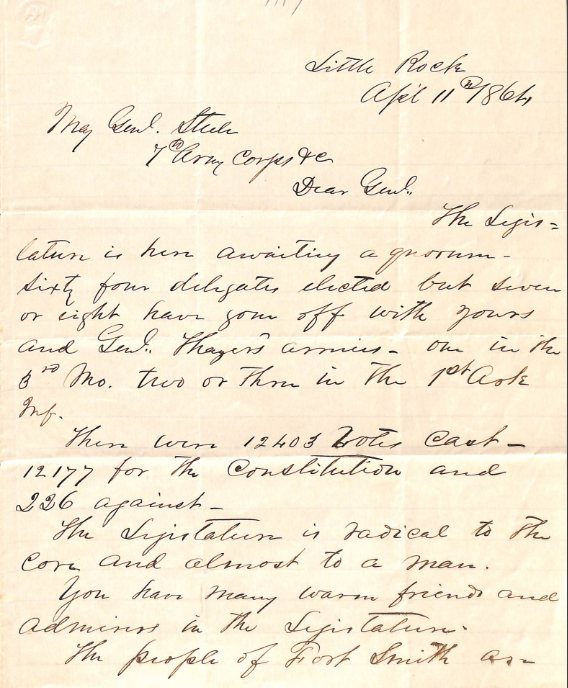 Little Rock
Apl 11th 1864
Maj Genl. Steele
7th Army Corps &c
Dear Genl.
The Legis=
lature is here awaiting a quorum -
Sixty four delegates elected but seven
or eight have gone off with yours
and Genl. Thayer's armies - one in the
3rd Mo. two or three in the 1st Ark
Inf.
There were 12403 Votes Cast -
12177 for the Constitution and
226 against -
The Legislature is radical to the
core and almost to a man.
You have many warm friends and
admirers in the Legislature.
The people of Fort Smith are